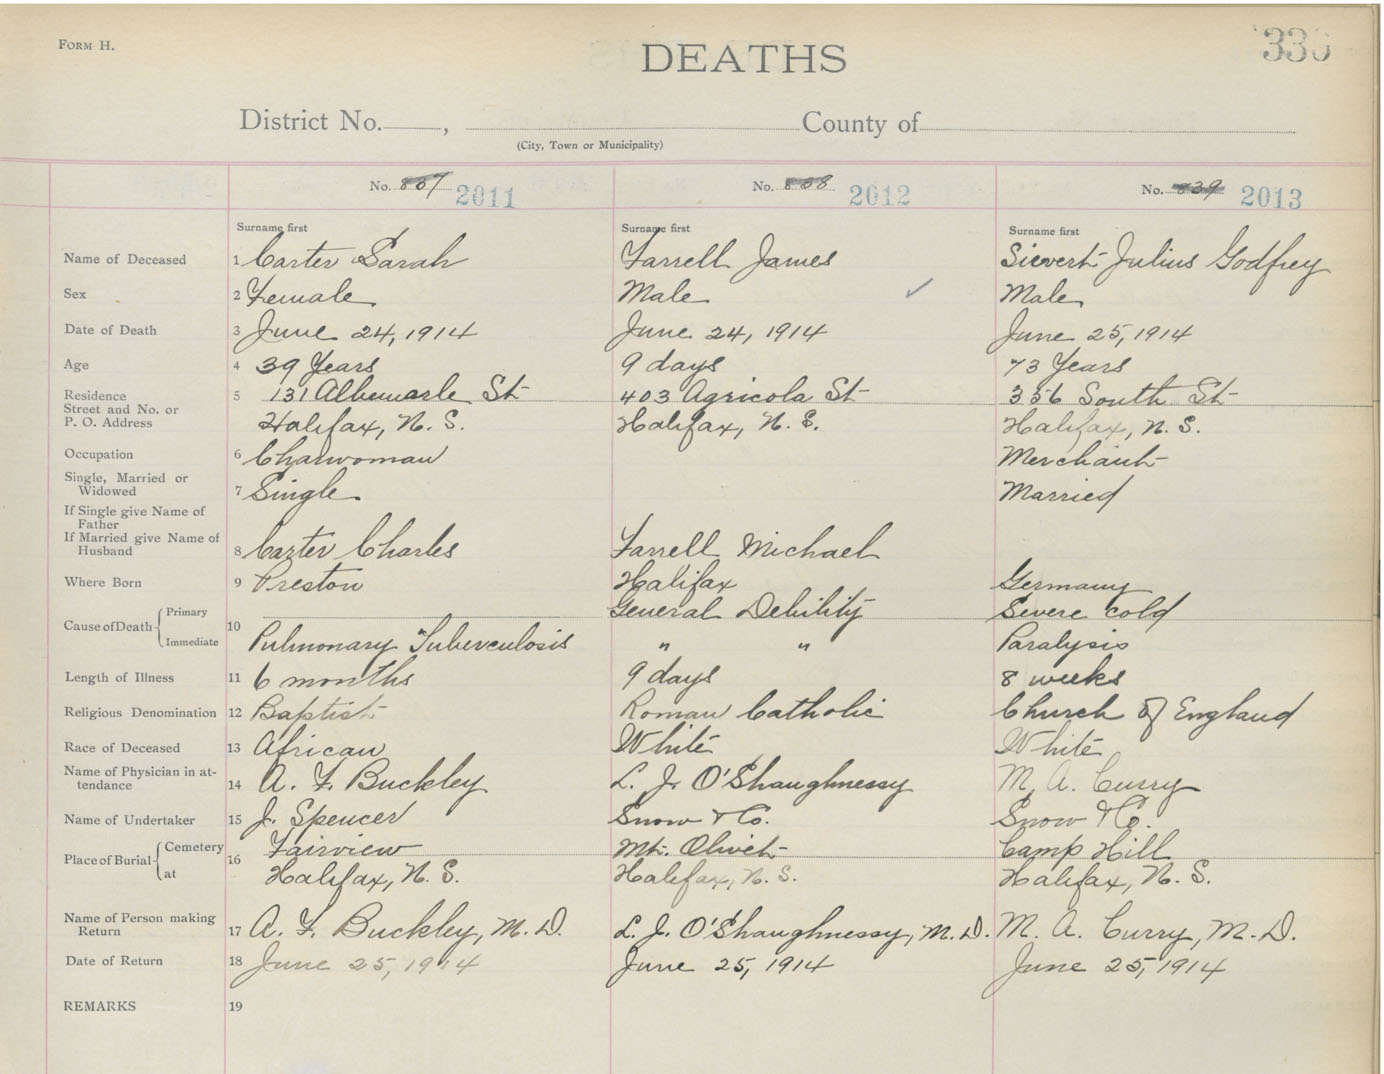 FORM H.
DEATHS
District No. , County of
(City, Town or Municipality)
No. 837 2011 No. 838 2012 No. 839 2013
Surname first Surname first Surname first
Name of Deceased 1 Carter Sarah Farrell James Sievert Julius Godfrey
Sex 2 Female Male ✓ Male
Date of Death 3 June 24, 1914 June 24, 1914 June 25, 1914
Age 4 39 Years 9 days 73 Years
Residence 5 131 Albemarle St 403 Agricola St 356 South St
Street and No. or
P. O. Address Halifax, N. S. Halifax, N. S. Halifax, N. S.
Occupation 6 Charwoman Merchant
Single, Married or
Widowed 7 Single Married
If Single give Name of
Father
If Married give Name of
Husband 8 Carter Charles Farrell Michael
Where Born 9 Preston Halifax Germany
Cause of Death 10 Primary General Debility Severe cold
Immediate Pulmonary Tuberculosis " " Paralysis
Length of Illness 11 6 months 9 days 8 weeks
Religious Denomination 12 Baptist Roman Catholic Church of England
Race of Deceased 13 African White White
Name of Physician in at-
tendance 14 A. F. Buckley L. J. O'Shaughnessy M. A. Curry
Name of Undertaker 15 J. Spencer Snow & Co. Snow & Co.
Place of Burial 16 Cemetery Fairview Mt. Olivet Camp Hill
at Halifax, N. S. Halifax, N. S. Halifax, N. S.
Name of Person making
Return 17 A. F. Buckley, M. D. L. J. O'Shaughnessy, M. D. M. A. Curry, M. D.
Date of Return 18 June 25, 1914 June 25, 1914 June 25, 1914
REMARKS 19